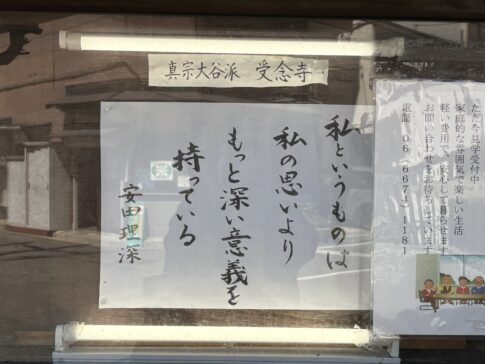 真宗大谷派 受念寺
私というものは
私の思いより
もっと深い意義を
持っている
安田理深
ただ今見学受付中
家庭的な雰囲気で楽しい生活
軽い費用で、安心して暮らせます
お問い合わせをお待ちしています
電話 06(6672)1181